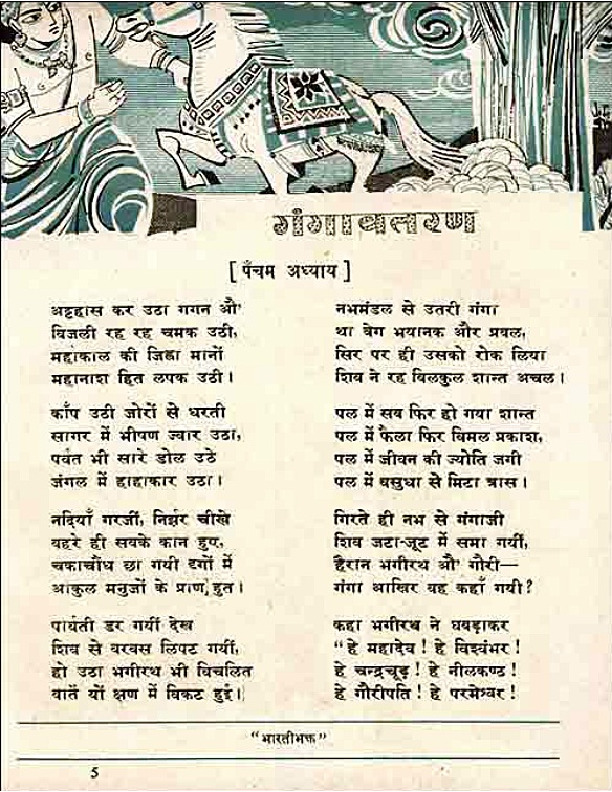 गंगावतरण
[ पंचम अध्याय ]
अट्टहास कर उठा गगन औ'
बिजली रह रह चमक उठी,
महाकाल की जिह्वा मानों
महानाश हित लपक उठी।
काँप उठी जोरों से धरती
सागर में भीषण ज्वार उठा,
पर्वत भी सारे डोल उठे
जंगल में हाहाकार उठा।
नदियाँ गरजीं, निर्झर चीखे
बहरे ही सबके कान हुए,
चकाचौंध छा गयी दृगों में
आकुल मनुजों के प्राण हुत।
पार्वती डर गयीं देख
शिव से बरबस लिपट गयीं,
हो उठा भगीरथ भी विचलित
बातें यों क्षण में विकट हुईं।
नभमंडल से उतरी गंगा
था वेग भयानक और प्रबल,
सिर पर ही उसको रोक लिया
शिव ने रह बिलकुल शान्त अचल।
पल में सब फिर हो गया शान्त
पल में फैला फिर विमल प्रकाश,
पल में जीवन की ज्योति जगी
पल में वसुधा से मिटा त्रास।
गिरते ही नभ से गंगाजी
शिव जटा-जूट में समा गयीं,
हैरान भगीरथ औ' गौरी—
गंगा आखिर वह कहाँ गयी?
कहा भगीरथ ने घबड़ाकर
"हे महादेव! हे विश्वंभर!
हे चन्द्रचूड़! हे नीलकण्ठ!
हे गौरीपति! हे परमेश्वर!
"भारतीभक्त"
5